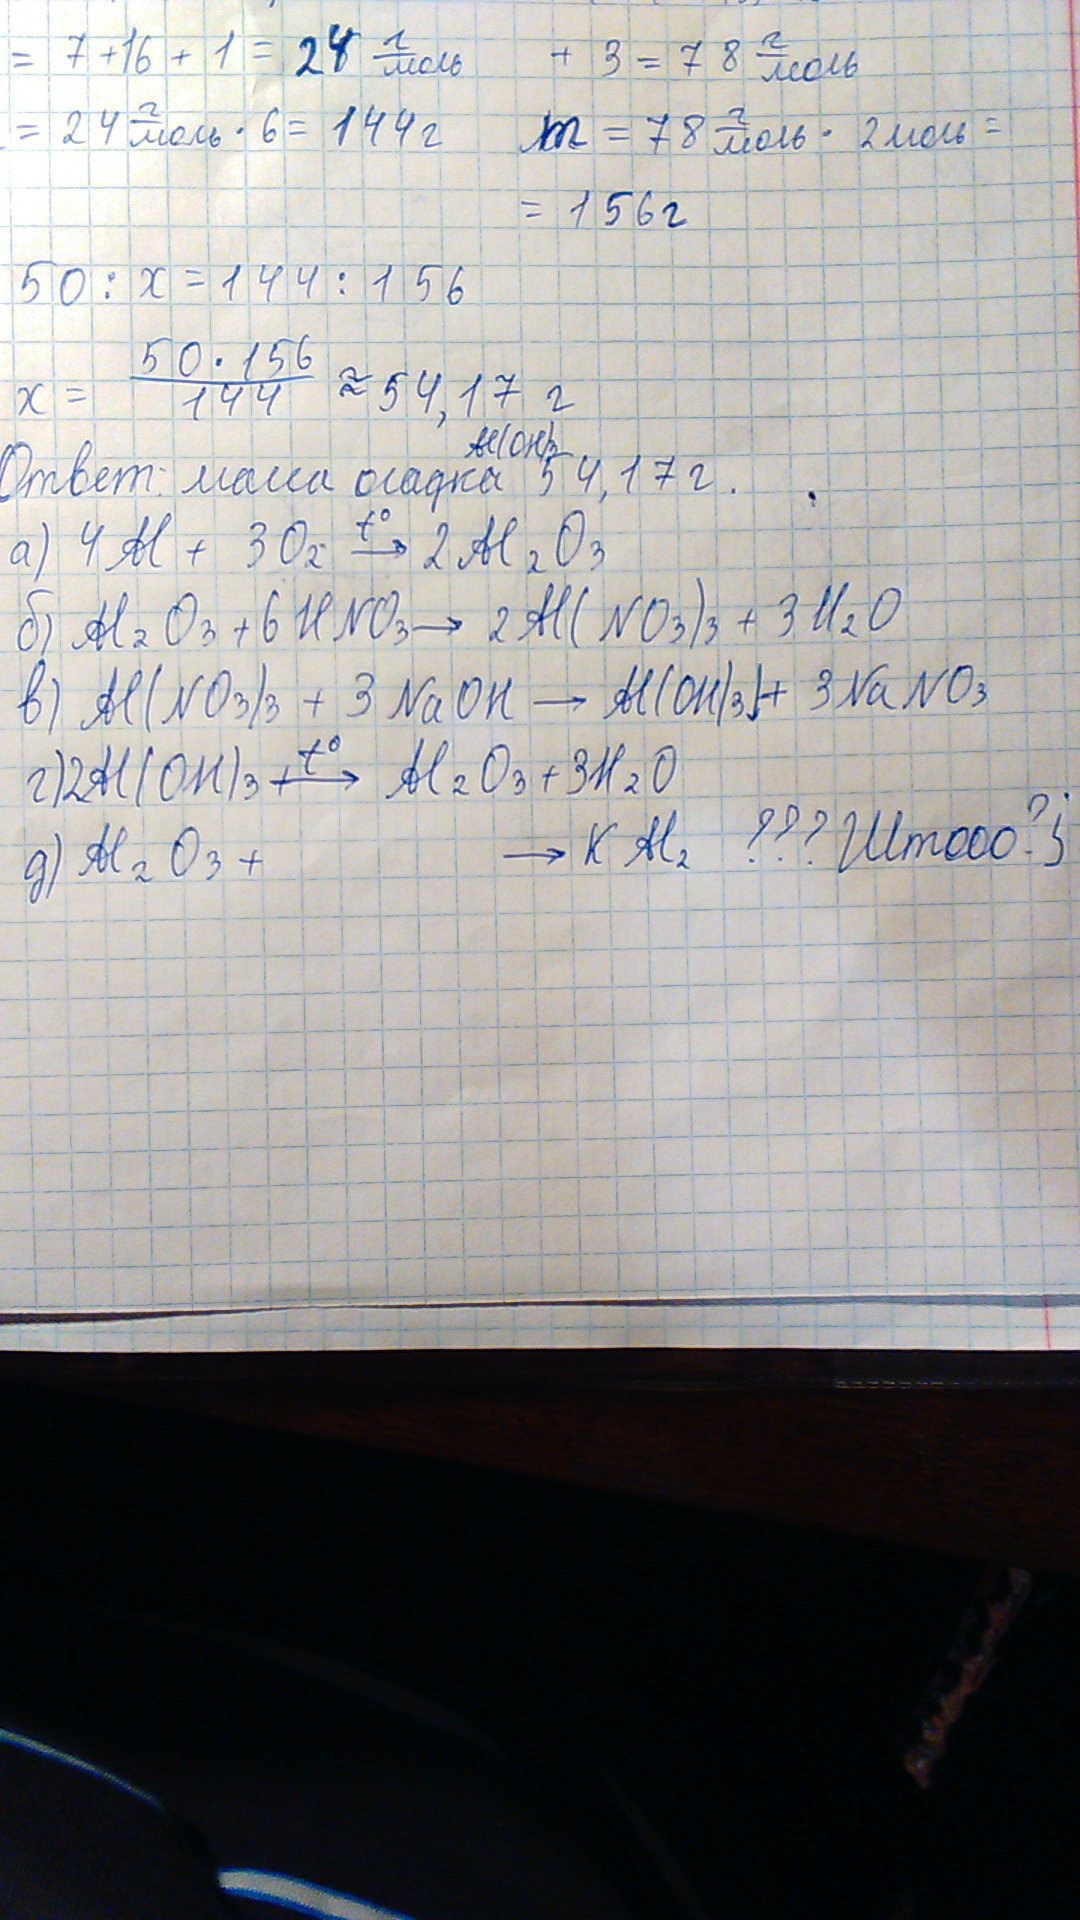 = 7 + 16 + 1 = 24 г/моль + 3 = 78 г/моль
= 24 г/моль · 6 = 144 г m = 78 г/моль · 2 моль =
= 156 г
50 : x = 144 : 156
x = 50 · 156 / 144 ≈ 54,17 г
Al(OH)3
Ответ: масса осадка 54,17 г.
а) 4Al + 3O2 t°→ 2Al2O3
б) Al2O3 + 6HNO3 → 2Al(NO3)3 + 3H2O
в) Al(NO3)3 + 3NaOH → Al(OH)3↓ + 3NaNO3
г) 2Al(OH)3 + t°→ Al2O3 + 3H2O
д) Al2O3 + → K Al2 ??? Штооо?